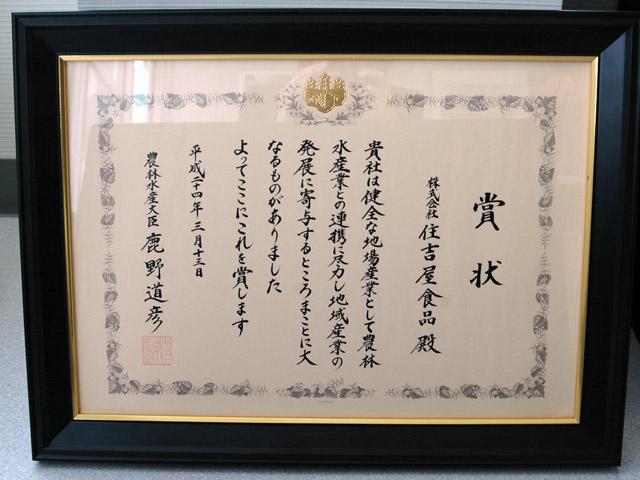 賞状
株式会社 住吉屋食品 殿
貴社は健全な地場産業として農林
水産業との連携に尽力し地域産業の
発展に寄与するところまことに大
なるものがありました
よってここにこれを賞します
平成二十四年三月十三日
農林水産大臣 鹿野道彦